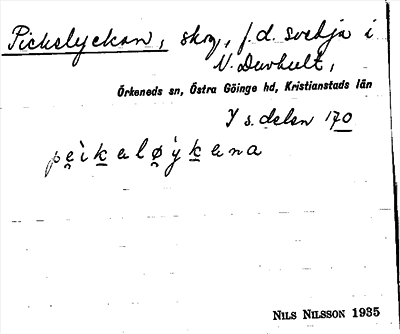 Pickelyckan, skog, f.d. svedja i
N. Duvhult,
Örkeneds sn, Östra Göinge hd, Kristianstads län
Y s. delen 170
pe̯ìkeløýkena
NILS NILSSON 1935